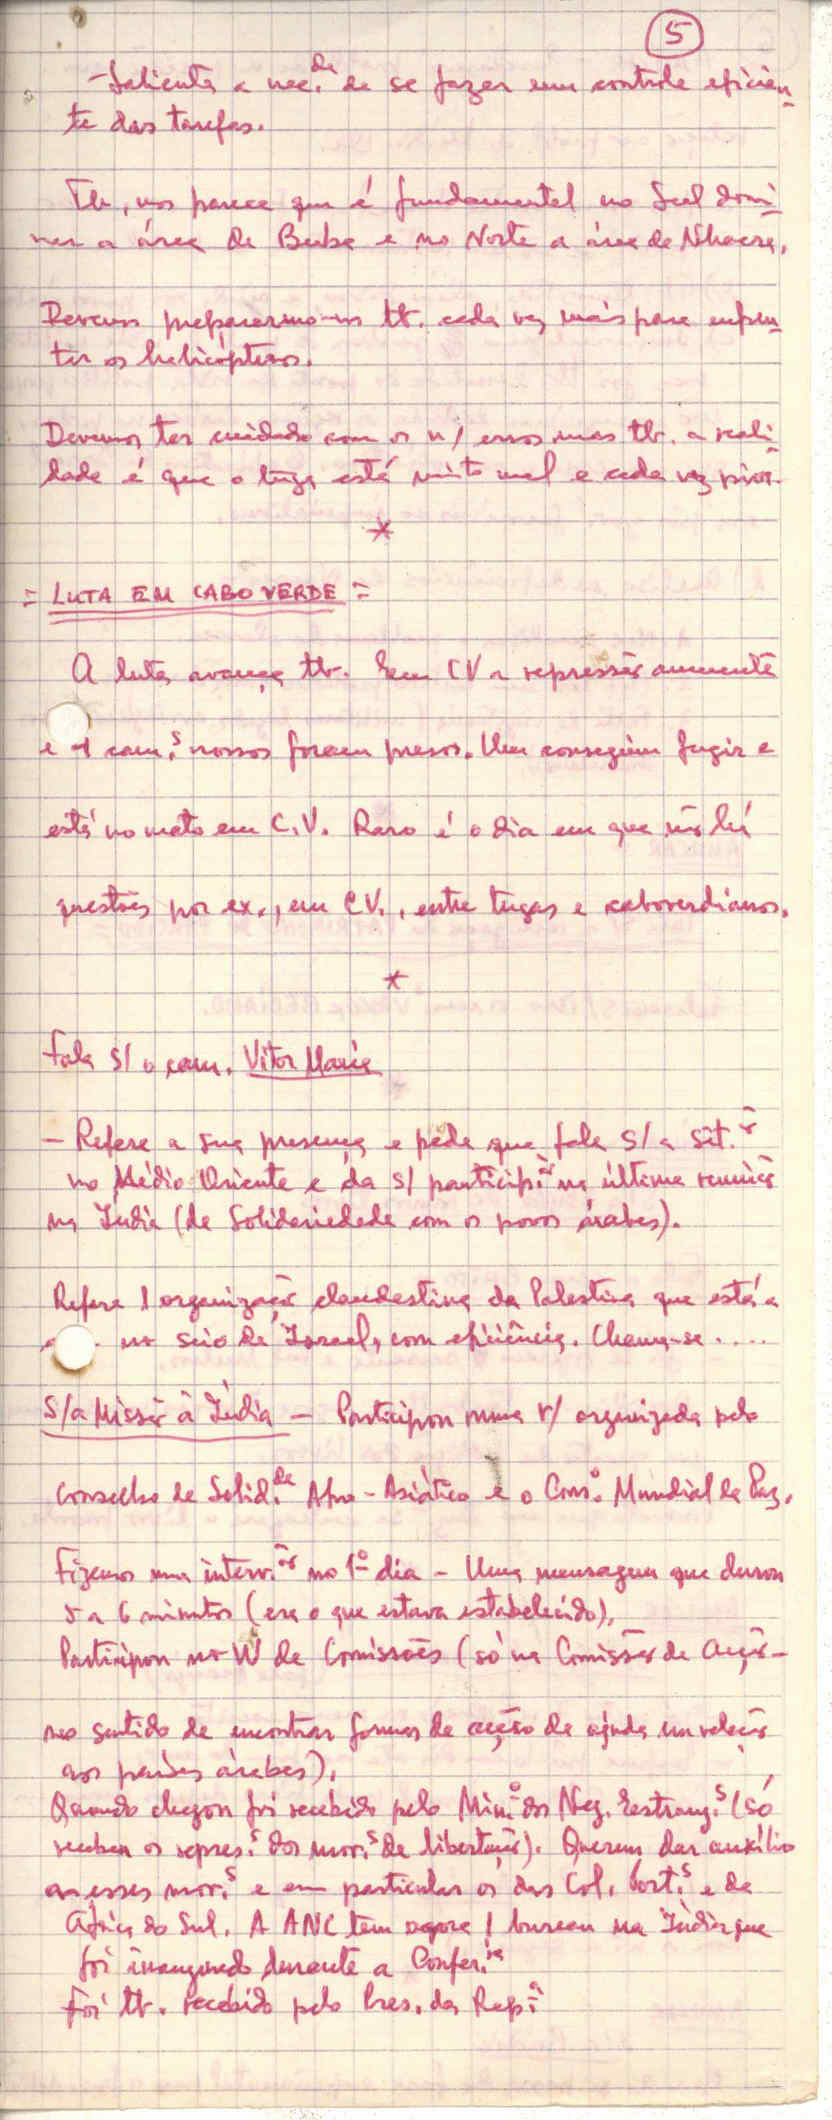 5
- Salienta a nec.de de se fazer um controle eficien-
te das tarefas.
Tb, nos parece que é fundamental no Sul domi-
nar a área de Buba e no Norte a área de Nhacra.
Devemos prepararmo-nos tb. cada vez mais para enfren-
tar os helicópteros.
Devemos ter cuidado com os n/ erros mas tb. a reali-
dade é que o tuga está muito mal e cada vez pior.
*
= LUTA EM CABO VERDE =
A luta avança tb. Em CV a repressão aumenta
e cam.s nossos foram presos. Um conseguiu fugir e
está no mato em C.V. Raro é o dia em que não há
questões por ex., em CV., entre tugas e caboverdianos.
*
Fala s/ o cam. Vitor Maria
- Refere a sua presença e pede que fale s/ a sit.ão
no Médio Oriente e da s/ particip.ão na última reunião
na Índia (de Solidariedade com os povos árabes).
Refere 1 organização clandestina da Palestina que está a
no seio de Israel, com eficiência. Chama-se ....
S/a Missão à Índia - Participou numa r/ organizada pelo
Conselho de Solid.de Afro-Asiático e o Cons.o Mundial da Paz.
Fizemos uma interv.ão no 1º dia - Uma mensagem que durou
5 a 6 minutos (era o que estava estabelecido).
Participou no W de Comissões (só na Comissão de Acção -
no sentido de encontrar formas de acção de ajuda em relação
aos países árabes).
Quando chegou foi recebido pelo Min.o dos Neg. Estrang.s (só
recebeu os repres.s dos mov.s de libertação). Querem dar auxílio
a esses mov.s e em particular os das Col. Port.s e da
África do Sul. A ANC tem agora 1 bureau na Índia que
foi inaugurado durante a Confer.ia
Foi tb. recebido pelo Pres. da Rep.a